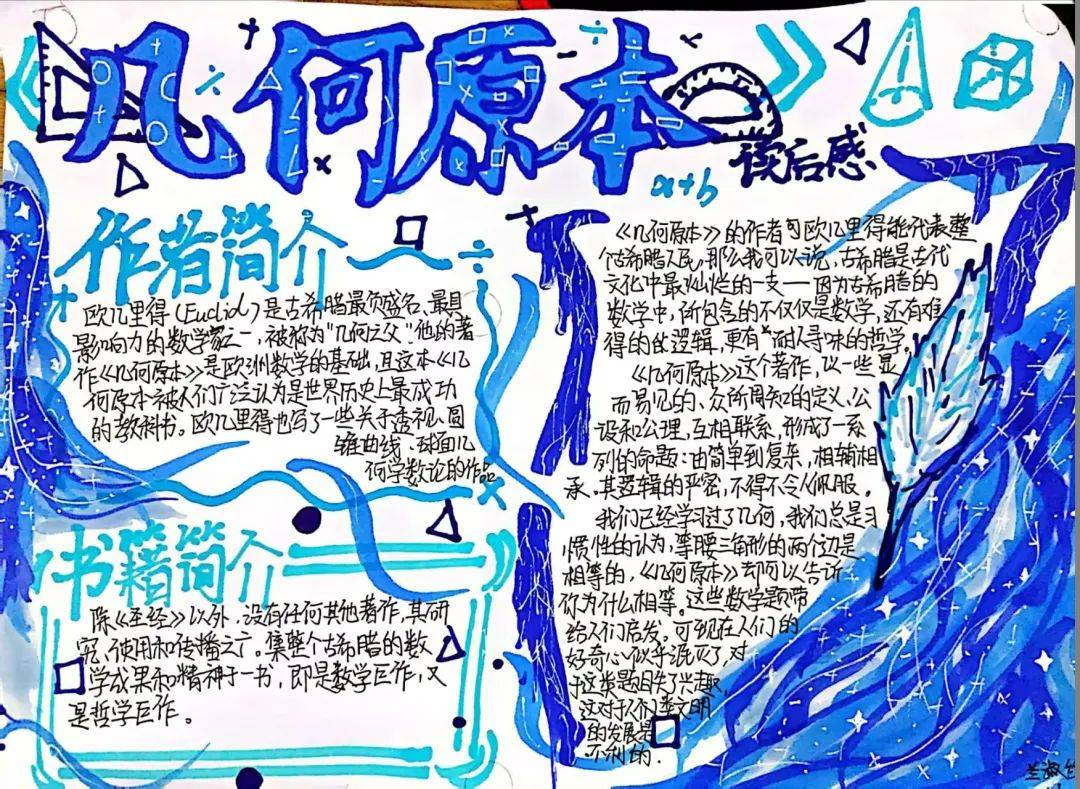 几何原本
读后感
a+b
作者简介
欧几里得(Euclid)是古希腊最负盛名、最具
影响力的数学家之一，被称为"几何之父"。他的著
作《几何原本》是欧洲数学的基础，且这本《几
何原本》被人们广泛认为是世界历史上最成功
的教科书。欧几里得也写了一些关于透视、圆
锥曲线、球面几
何学数论的作品
书籍简介
除《圣经》以外，没有任何其他著作，其研
究、使用和传播之广。集整个古希腊的数
学成果和精神于一书，即是数学巨作，又
是哲学巨作。
《几何原本》的作者 欧几里得能代表整
个古希腊人民，那么我可以说，古希腊是古代
文化中最灿烂的一支——因为古希腊的
数学中，所包含的不仅仅是数学，还有难
得的 逻辑，更有 耐人寻味的哲学。
《几何原本》这个著作，以一些显
而易见的、众所周知的定义、公
设和公理，互相联系，形成了一系
列的命题：由简单到复杂，相辅相
承。其逻辑的严密，不得不令人佩服。
我们已经学习过了几何，我们总是习
惯性的认为，等腰三角形的两个边是
相等的，《几何原本》却可以告诉
你为什么相等。这些数学题带
给人们启发。可现在人们的
好奇心似乎泯灭了，对
于这类题目失了兴趣，
这对于人们类文明
的发展是
不利的.